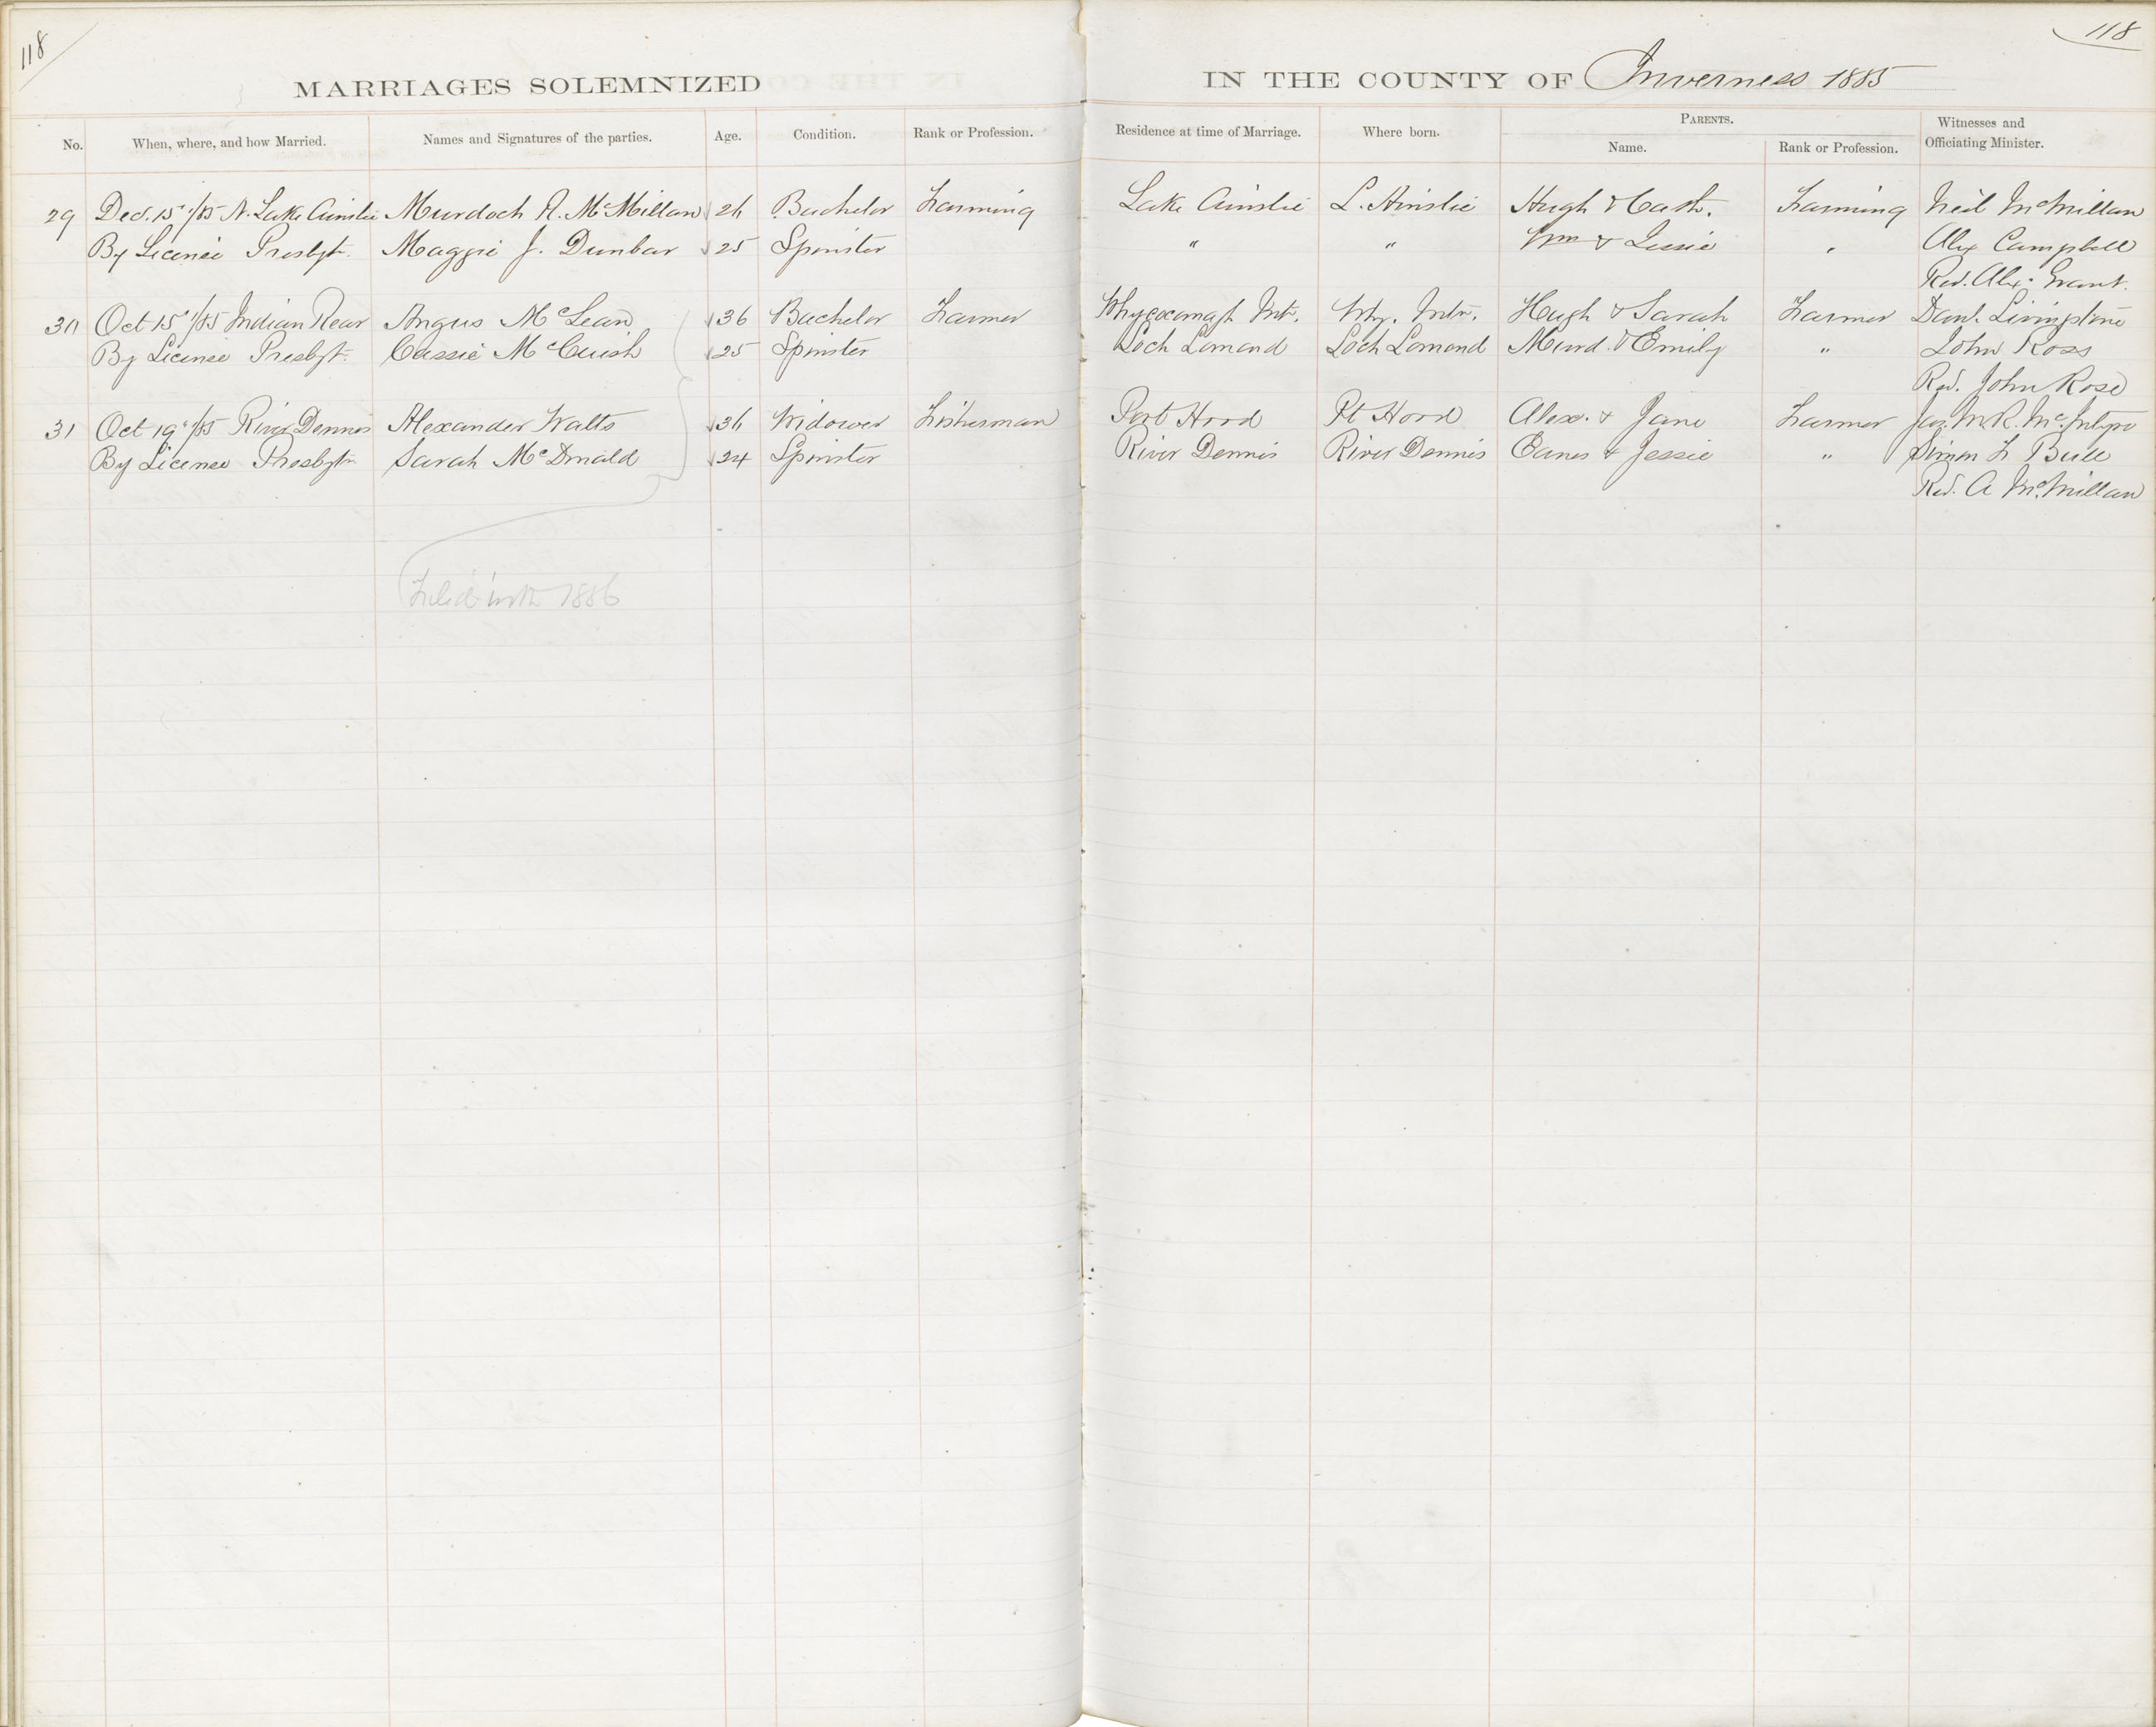 118
118
MARRIAGES SOLEMNIZED IN THE COUNTY OF Inverness 1885
No. When, where, and how Married. Names and Signatures of the parties. Age. Condition. Rank or Profession. Residence at time of Marriage. Where born. PARENTS. Name. Rank or Profession. Witnesses and Officiating Minister.
29 Dec. 15th/85 N. Lake Ainslie Murdoch A. McMillan 26 Bachelor Farming Lake Ainslie L. Ainslie Hugh & Cath. Farming Neil McMillan
By License Presbyt. Maggie J. Dunbar 25 Spinster " " Wm & Jessie " Alex Campbell
Rev. Alex. Grant.
30 Oct 15th/85 Indian Rear Angus McLean 36 Bachelor Farmer Whycocomagh Mtn. Why. Mtn. Hugh & Sarah Farmer Danl. Livingstone
By License Presbyt. Cassie McCuish 25 Spinster Loch Lomond Loch Lomond Murd. & Emily " John Ross
Rev. John Rose
31 Oct 19th/85 River Dennis Alexander Watts 36 Widower Fisherman Port Hood Pt Hood Alex. & Jane Farmer
By License Presbytn Sarah McDonald 24 Spinster River Dennis River Dennis & Jessie "
Rev. A McMillan
1886